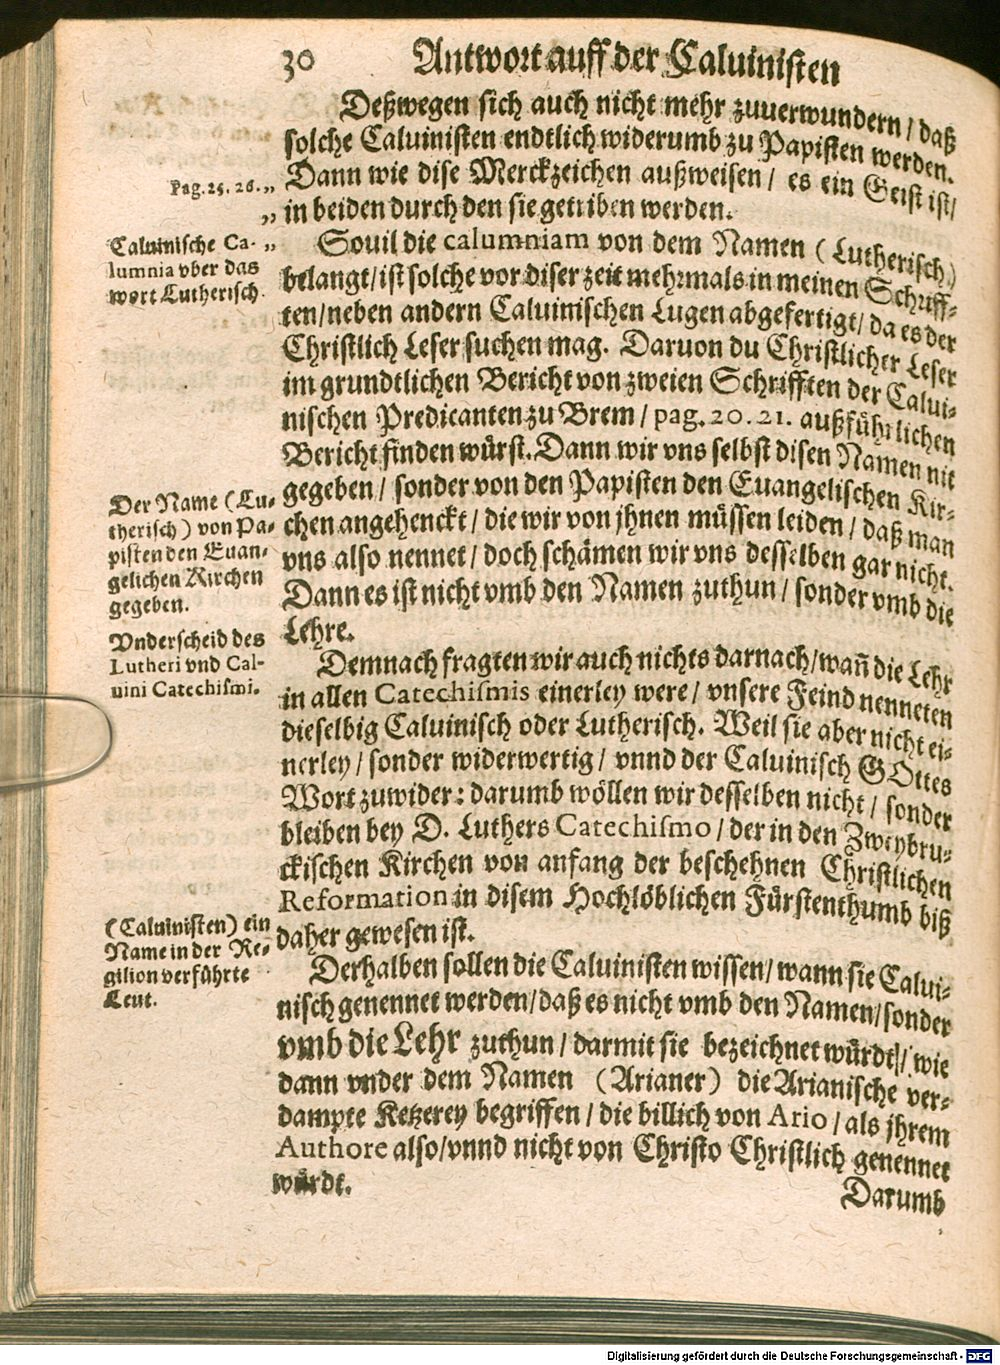 30 Antwort auff der Caluinisten
Deßwegen sich auch nicht mehr zuuerwundern / daß
solche Caluinisten endtlich widerumb zu Papisten werden.
Pag. 25. 26. „ Dann wie dise Merckzeichen außweisen / es ein Geist ist /
„ in beiden durch den sie getriben werden.
Caluinische Ca- „
lumnia vber das
wort Lutherisch.
Souil die calumniam von dem Namen ( Lutherisch )
belangt / ist solche vor diser zeit mehrmals in meinen Schriff-
ten / neben andern Caluinischen Lugen abgefertigt / da es der
Christlich Leser suchen mag. Daruon du Christlicher Leser
im grundtlichen Bericht von zweien Schrifften der Calui-
nischen Predicanten zu Brem / pag. 20. 21. außführlichen
Bericht finden würst. Dann wir vns selbst disen Namen nit
Der Name ( Lu-
therisch ) von Pa-
pisten den Euan-
gelichen Kirchen
gegeben.
gegeben / sonder von den Papisten den Euangelischen Kir-
chen angehenckt / die wir von jhnen müssen leiden / daß man
vns also nennet / doch schämen wir vns desselben gar nicht.
Dann es ist nicht vmb den Namen zuthun / sonder vmb die
Lehre.
Vnderscheid des
Lutheri vnd Cal-
uini Catechismi.
Demnach fragten wir auch nichts darnach / wañ die Lehr
in allen Catechismis einerley were / vnsere Feind nenneten
dieselbig Caluinisch oder Lutherisch. Weil sie aber nicht ei-
nerley / sonder widerwertig / vnnd der Caluinisch GOttes
Wort zuwider : darumb wöllen wir desselben nicht / sonder
bleiben bey D. Luthers Catechismo / der in den Zweybru-
ckischen Kirchen von anfang der beschehnen Christlichen
Reformation in disem Hochlöblichen Fürstenthumb biß
daher gewesen ist.
( Caluinisten ) ein
Name in der Re-
gilion verführte
Leut.
Derhalben sollen die Caluinisten wissen / wann sie Calui-
nisch genennet werden / daß es nicht vmb den Namen / sonder
vmb die Lehr zuthun / darmit sie bezeichnet würdt / wie
dann vnder dem Namen ( Arianer ) die Arianische ver-
dampte Ketzerey begriffen / die billich von Ario / als jhrem
Authore also / vnnd nicht von Christo Christlich genennet
würdt.
Darumb
Digitalisierung gefördert durch die Deutsche Forschungsgemeinschaft - DFG